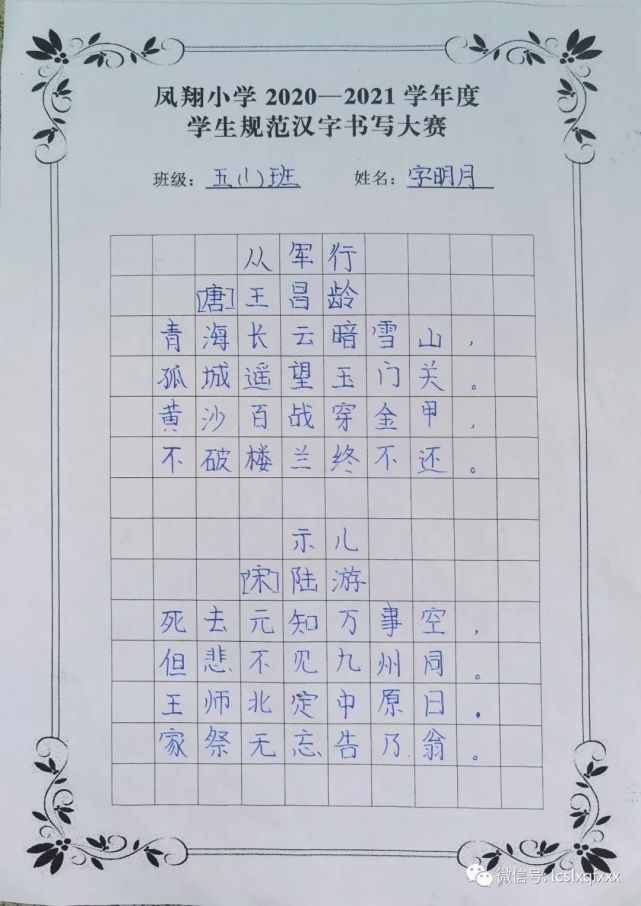 凤翔小学 2020—2021 学年度
学生规范汉字书写大赛
班级：五(1)班 姓名：字明月
从军行
[唐]王昌龄
青海长云暗雪山，
孤城遥望玉门关。
黄沙百战穿金甲，
不破楼兰终不还。
示儿
[宋]陆游
死去元知万事空，
但悲不见九州同。
王师北定中原日，
家祭无忘告乃翁。
微信号: lcslxqfxxx